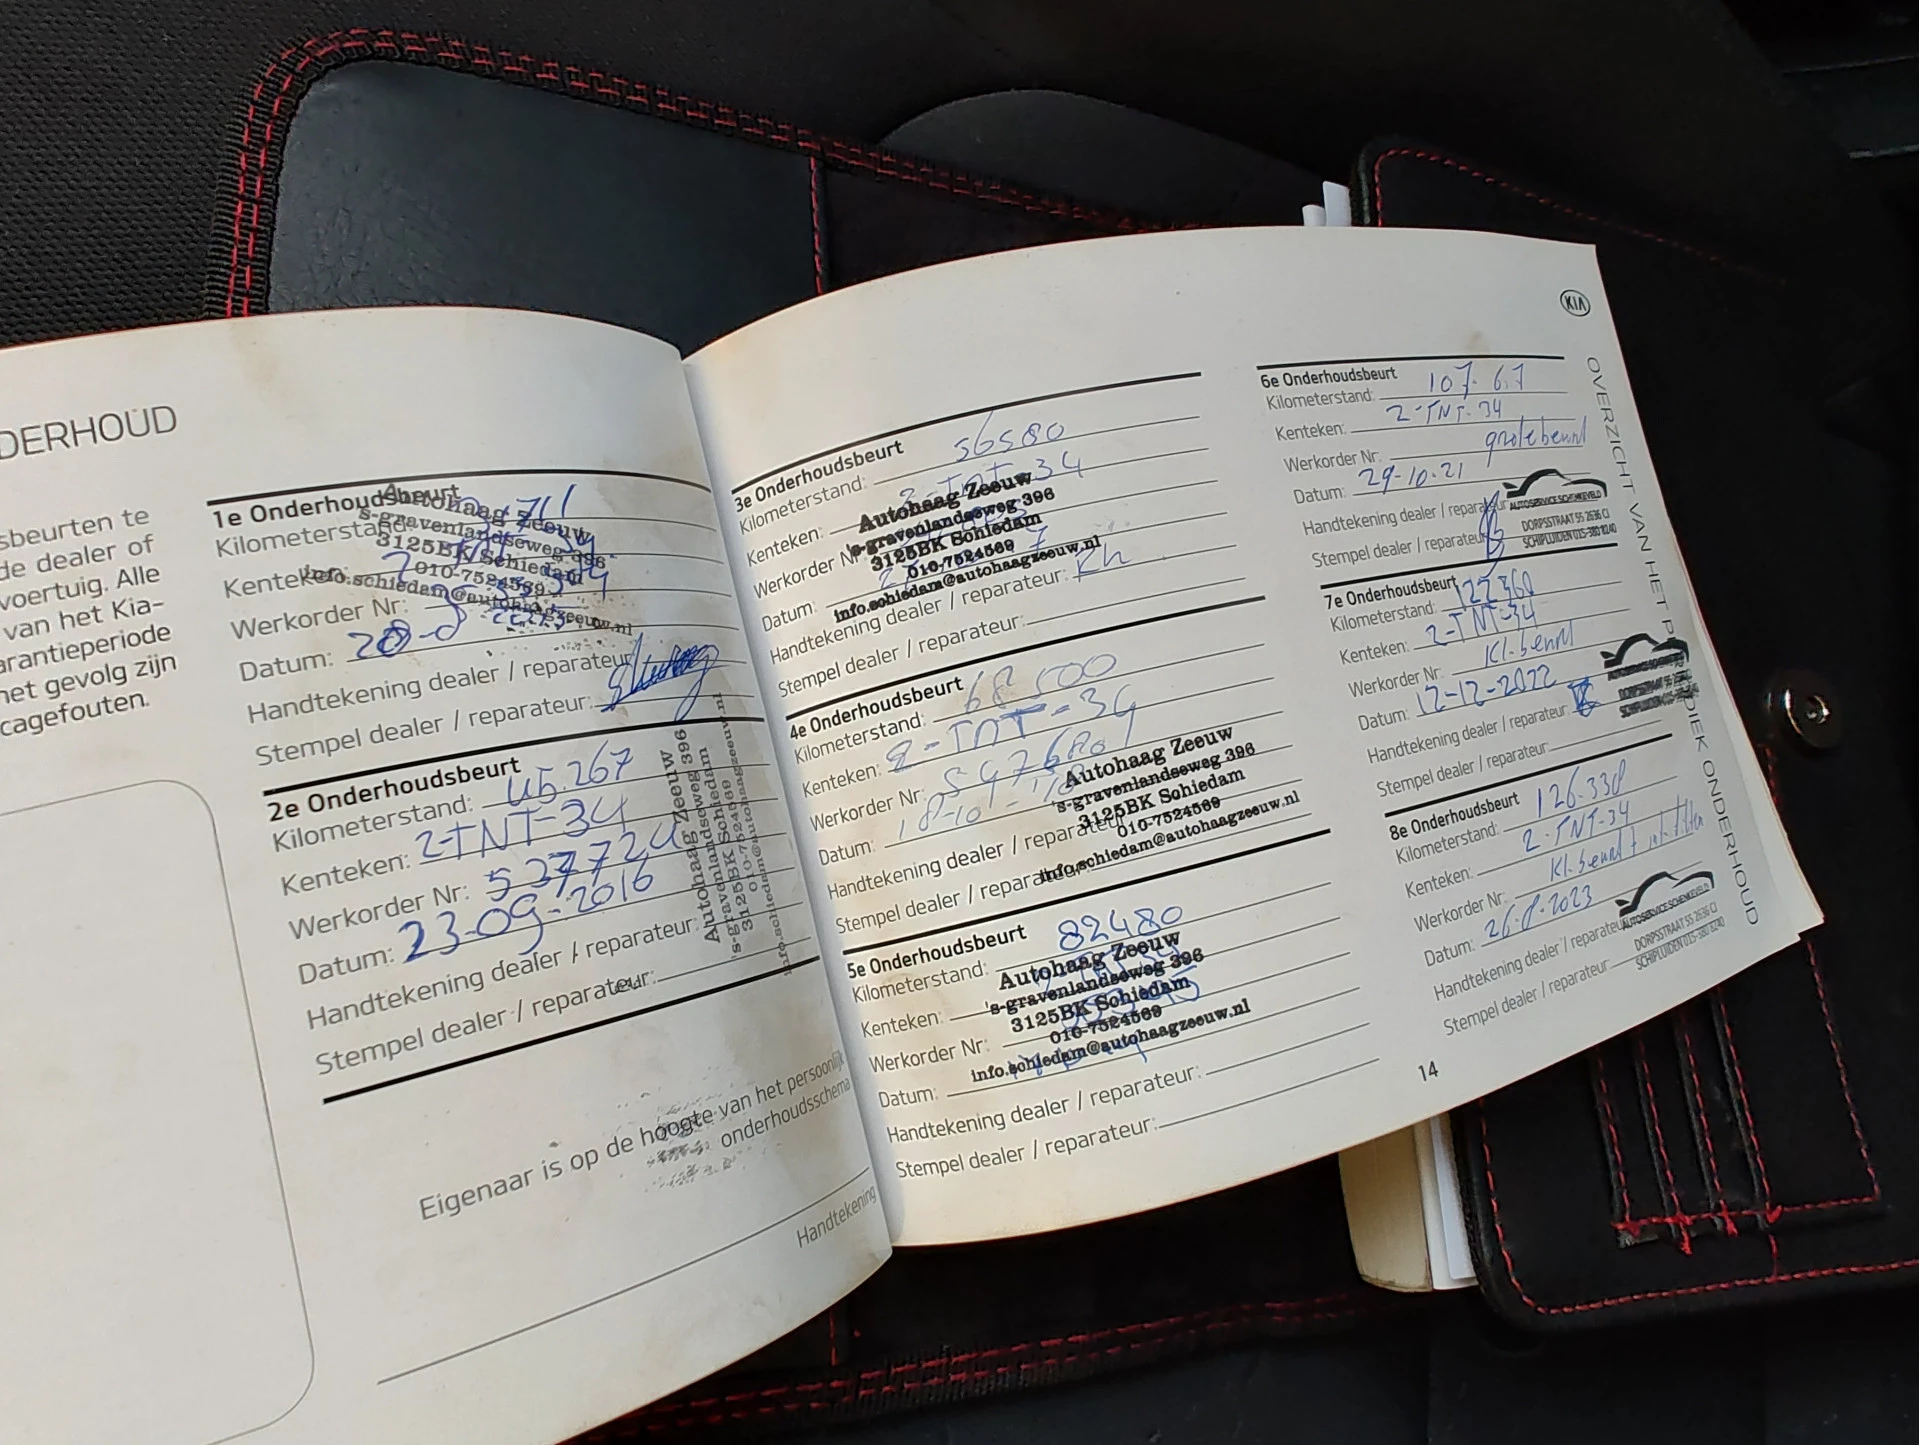 DERHOUD
sbeurten te
de dealer of
voertuig. Alle
van het Kia-
arantieperiode
het gevolg zijn
cagefouten.
1e Onderhoudsbeurt
Kilometerstand:
Kenteken:
Werkorder Nr:
Datum:
Handtekening dealer / reparateur
Stempel dealer / reparateur:
Autohaag Zeeuw
's-gravenlandseweg 396
3125BK Schiedam
010-7524569
info.schiedam@autohaagzeeuw.nl
2e Onderhoudsbeurt
Kilometerstand: 45.267
Kenteken: 2-TNT-34
Werkorder Nr: 537724
Datum: 23-09-2016
Handtekening dealer / reparateur:
Stempel dealer / reparateur:
Autohaag Zeeuw
's-gravenlandseweg 396
3125BK Schiedam
010-7524569
info.schiedam@autohaagzeeuw.nl
Eigenaar is op de hoogte van het persoonlijk
onderhoudsschema
Handtekening
3e Onderhoudsbeurt
Kilometerstand: 56580
Kenteken: 2-TNT-34
Werkorder Nr
Datum:
Handtekening dealer / reparateur:
Stempel dealer / reparateur:
Autohaag Zeeuw
's-gravenlandseweg 396
3125BK Schiedam
010-7524569
info.schiedam@autohaagzeeuw.nl
4e Onderhoudsbeurt
Kilometerstand: 68500
Kenteken: 2-TNT-34
Werkorder Nr:
Datum: 18-10-'18
Handtekening dealer / reparateur:
Stempel dealer / reparateur:
Autohaag Zeeuw
's-gravenlandseweg 396
3125BK Schiedam
010-7524569
info.schiedam@autohaagzeeuw.nl
5e Onderhoudsbeurt
Kilometerstand: 82480
Kenteken:
Werkorder Nr:
Datum:
Handtekening dealer / reparateur:
Stempel dealer / reparateur:
Autohaag Zeeuw
's-gravenlandseweg 396
3125BK Schiedam
010-7524569
info.schiedam@autohaagzeeuw.nl
KIA
6e Onderhoudsbeurt
Kilometerstand: 107.67
Kenteken: 2-TNT-34
Werkorder Nr: grote beurt
Datum: 29-10-21
Handtekening dealer / reparateur
Stempel dealer / reparateur
AUTOSERVICE SCHENKEVELD
DORPSSTRAAT 55 2636 CJ
SCHIPLUIDEN 015-380 8240
7e Onderhoudsbeurt
Kilometerstand: 122360
Kenteken: 2-TNT-34
Werkorder Nr: Kl. beurt
Datum: 12-12-2022
Handtekening dealer / reparateur
Stempel dealer / reparateur:
8e Onderhoudsbeurt
Kilometerstand: 126.338
Kenteken: 2-TNT-34
Werkorder Nr: Kl. beurt +
Datum: 26-8-2023
Handtekening dealer / reparateur
Stempel dealer / reparateur:
AUTOSERVICE SCHENKEVELD
DORPSSTRAAT 55 2636 CJ
SCHIPLUIDEN 015-380 8240
OVERZICHT VAN HET PERIODIEK ONDERHOUD
14